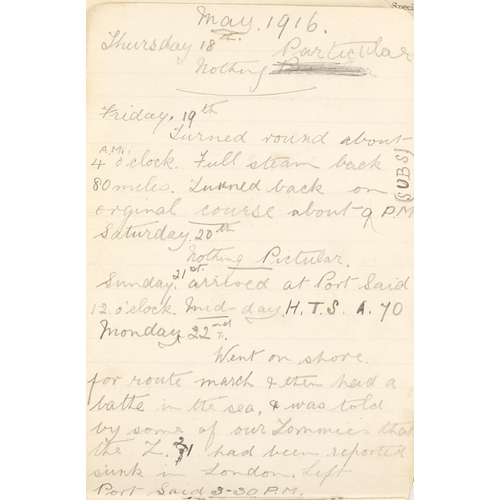 Speci
May, 1916.
Thursday 18th. Particular
Nothing
Friday. 19th
Turned round about
A.M.
4 o'clock. Full steam back
(SUBS)
80 miles. Turned back on
orginal course about 9 P.M
Saturday. 20th
Nothing Pictular.
Sunday. 21st. arrived at Port Said
12 o'clock. Mid-day, H.T.S. A. 70
Monday, 22nd.
Went on shore
for route march & then had a
bathe in the sea, & was told
by some of our Tommies that
the L. 31 had been reported
sunk in London. Left
Port Said 3-30 P.M.